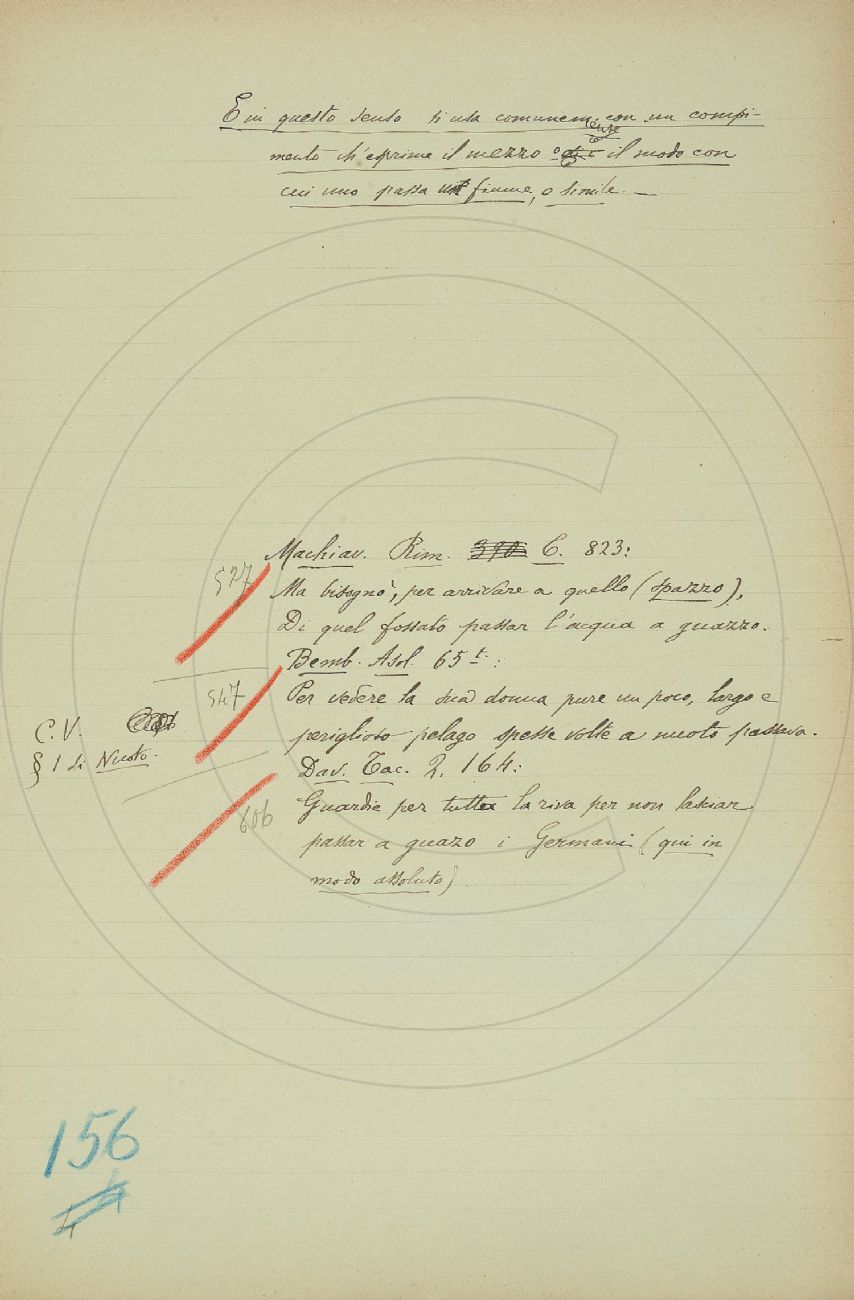 E in questo senso si usa comunemente con un compi-
mento ch'esprime il mezzo o il modo con
cui uno passa un fiume, o simile. —
Machiav. Rim. 390 C. 823:
527
Ma bisognò, per arrivare a quello (spazzo),
Di quel fossato passar l'acqua a guazzo.
Bemb. Asol. 65 t.:
547
Per vedere la sua donna pure un poco, largo e
C. V.
periglioso pelago spesse volte a nuoto passava.
§ 1 di Nuoto.
Dav. Tac. 2. 164:
606
Guardie per tutta la riva per non lasciar
passar a guazo i Germani (qui in
modo assoluto).
156
4